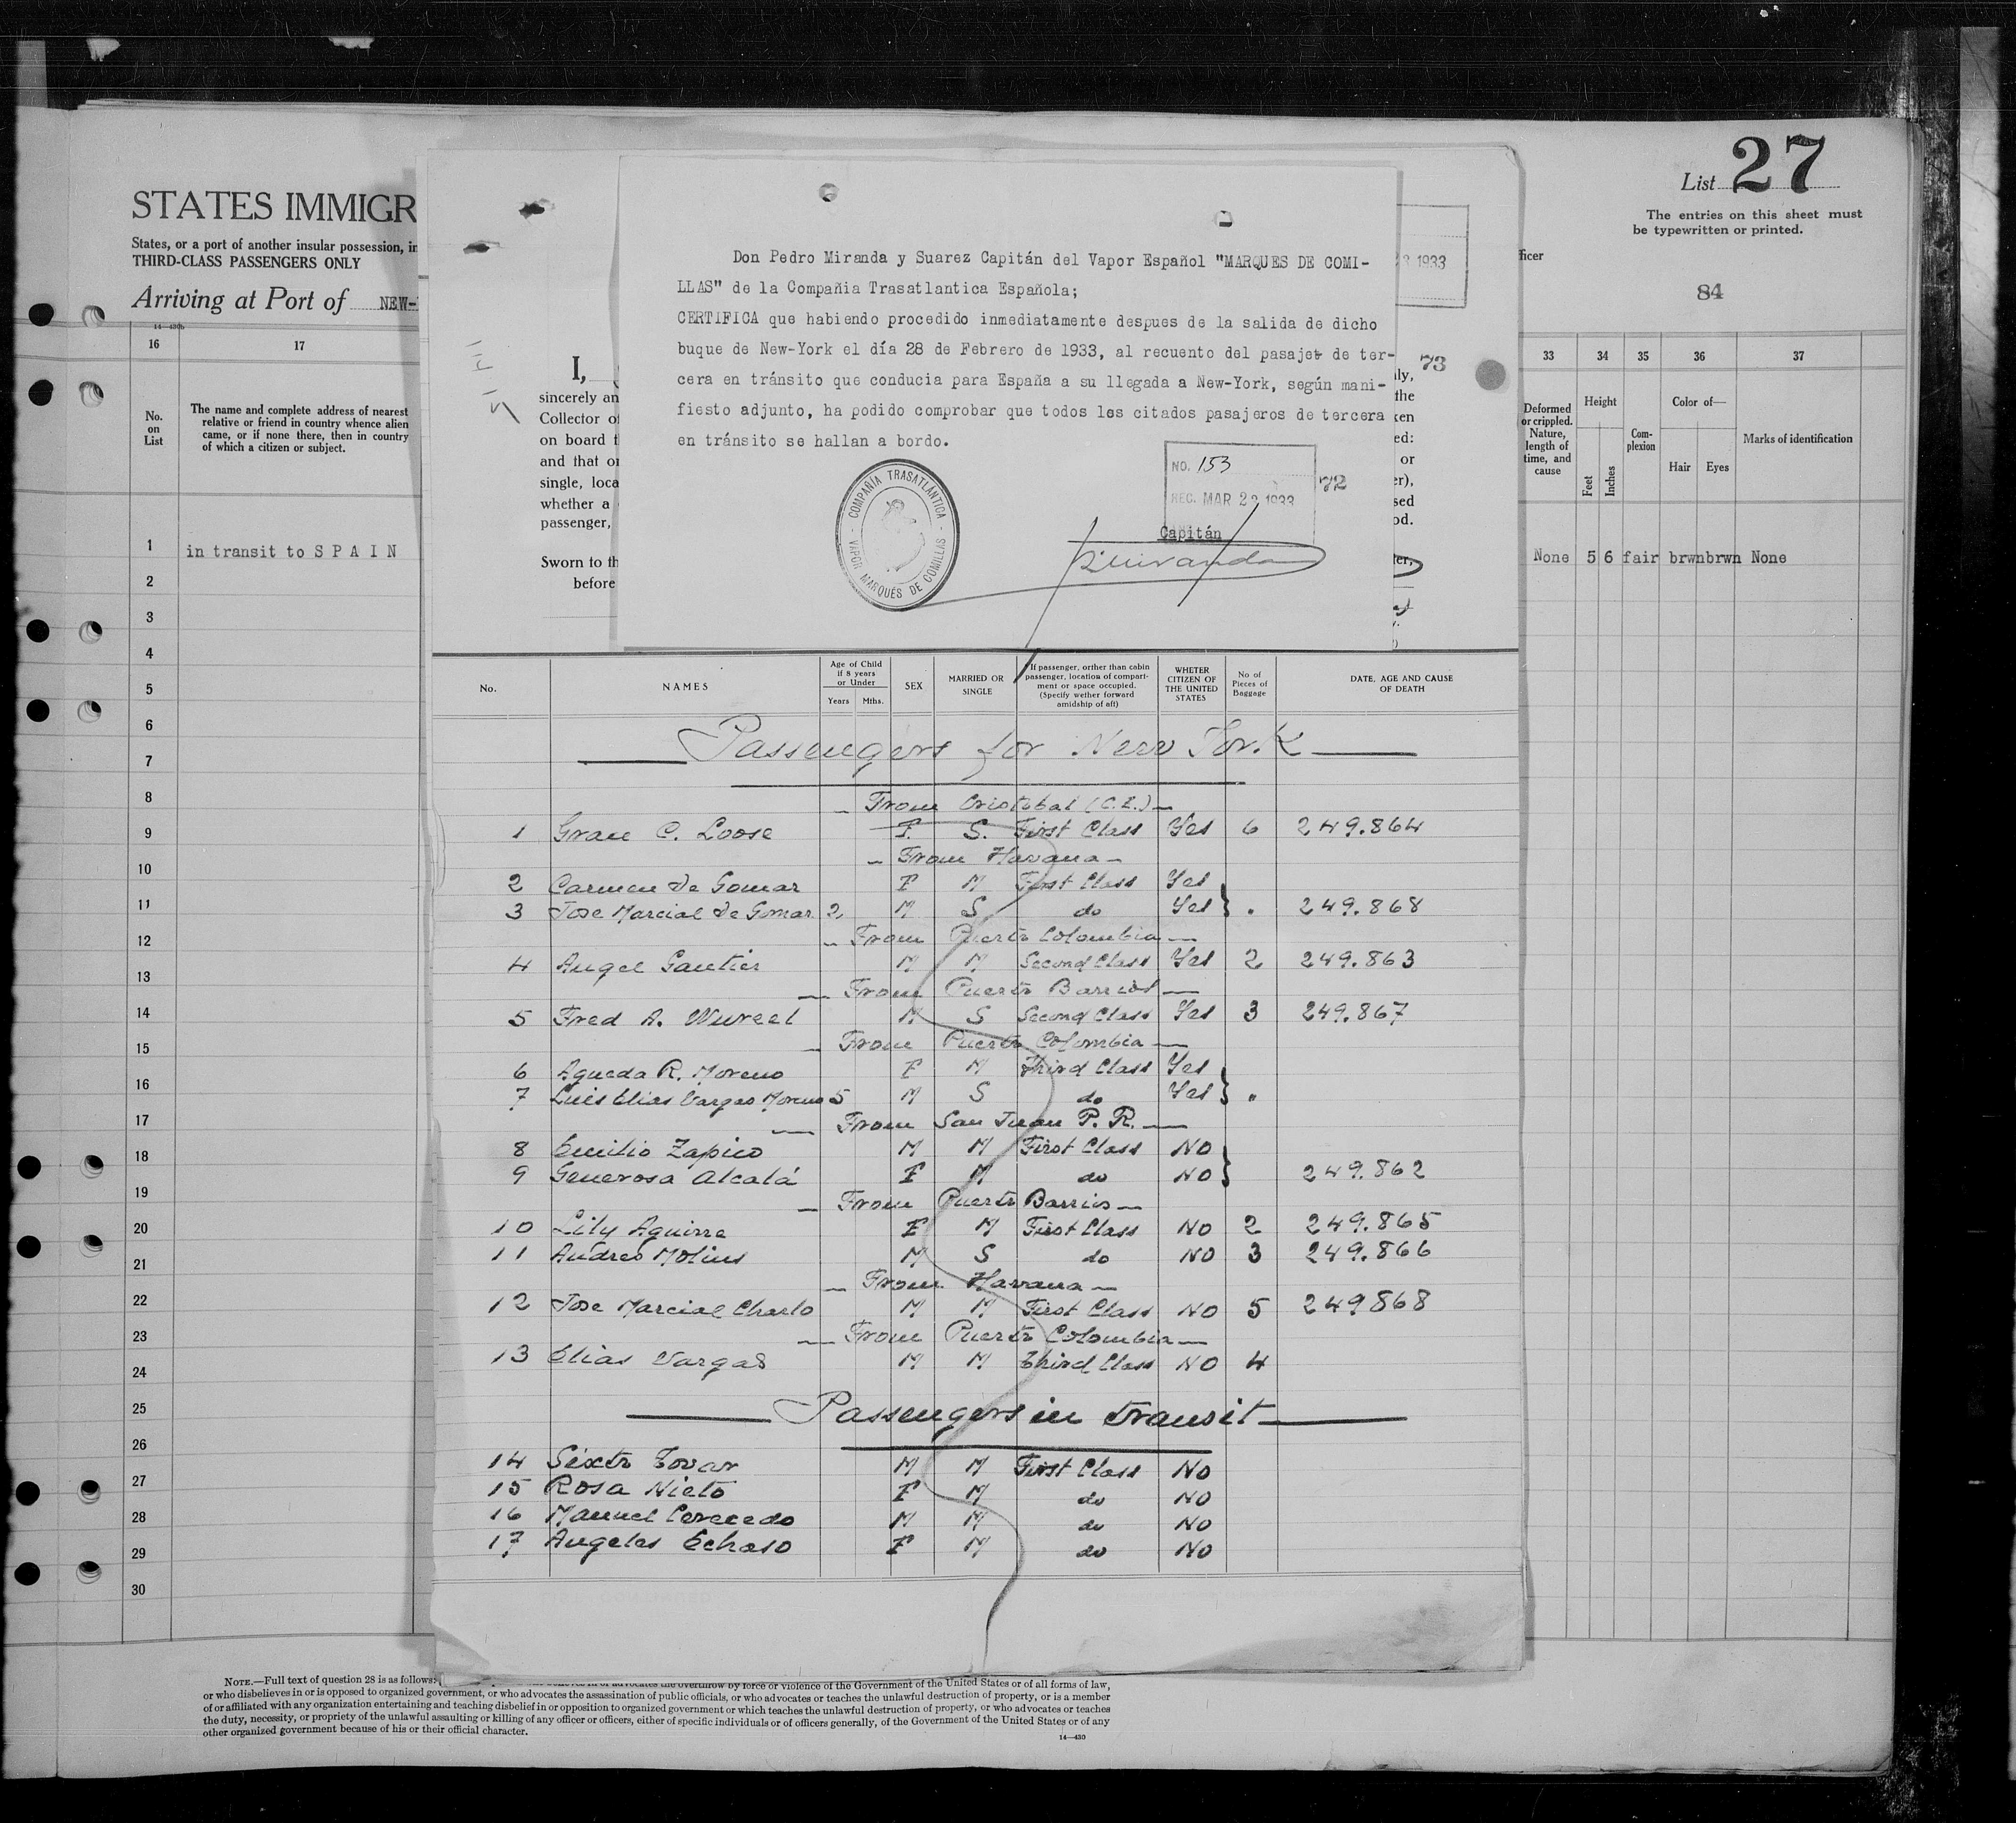 List 27
The entries on this sheet must
be typewritten or printed.
84
STATES IMMIGR
States, or a port of another insular possession, in
THIRD-CLASS PASSENGERS ONLY
Arriving at Port of NEW-
14—430b
16 17
No. on List
The name and complete address of nearest
relative or friend in country whence alien
came, or if none there, then in country
of which a citizen or subject.
1 in transit to S P A I N
2
3
4
5
6
7
8
9
10
11
12
13
14
15
16
17
18
19
20
21
22
23
24
25
26
27
28
29
30
Don Pedro Miranda y Suarez Capitán del Vapor Español "MARQUES DE COMI-
LLAS" de la Compañia Trasatlantica Española;
CERTIFICA que habiendo procedido inmediatamente despues de la salida de dicho
buque de New-York el día 28 de Febrero de 1933, al recuento del pasajet de ter-
cera en tránsito que conducia para España a su llegada a New-York, según mani-
fiesto adjunto, ha podido comprobar que todos los citados pasajeros de tercera
en tránsito se hallan a bordo.
NO. 153
REC. MAR 23 1933
72
Capitán
COMPAÑIA TRASATLANTICA
VAPOR MARQUÉS DE COMILLAS
3 1933
73
ficer
I,
sincerely an
Collector of
on board t
and that or
single, loca
whether a
passenger,
Sworn to th
before
ly,
the
ken
ed:
or
er),
sed
od.
ter,
No. NAMES Age of Child if 8 years or Under Years Mths. SEX MARRIED OR SINGLE If passenger, orther than cabin passenger, location of compartiment or space occupied. (Specify wether forward amidship of aft) WHETER CITIZEN OF THE UNITED STATES No of Pieces of Baggage DATE, AGE AND CAUSE OF DEATH
Passengers for New York
From Cristobal (C.Z.)
1 Grace C. Loose F. S. First Class Yes 6 249.864
From Havana
2 Carmen de Gomar F M First Class Yes
3 Jose Marcial de Gomar 2 M S do Yes 249.868
From Puerto Colombia
4 Angel Gautier M M Second Class Yes 2 249.863
From Puerto Barrios
5 Fred A. M S Second Class Yes 3 249.867
From Puerto Colombia
6 Agueda R. Moreno F M Third Class Yes
7 Luis Elias Vargas Moreno 5 M S do Yes
From San Juan P. R.
8 Emilio Zapico M M First Class NO
9 Generosa Alcalá F M do NO 249.862
From Puerto Barrios
10 Lily Aguirre F M First Class NO 2 249.865
11 Andres Molins M S do NO 3 249.866
From Havana
12 Jose Marcial Charlo M M First Class NO 5 249868
From Puerto Colombia
13 Elias Vargas M M Third Class NO 4
Passengers in transit
14 Sixto Tovar M M First Class No
15 Rosa Nieto F M do NO
16 Manuel Cerecedo M M do NO
17 Angeles Echaso F M do NO
33 34 35 36 37
Deformed or crippled. Nature, length of time, and cause
Height Feet Inches
Complexion
Color of— Hair Eyes
Marks of identification
None 5 6 fair brwnbrwn None
NOTE.—Full text of question 28 is as follows:
advocates the overthrow by force or violence of the Government of the United States or of all forms of law,
or who disbelieves in or is opposed to organized government, or who advocates the assassination of public officials, or who advocates or teaches the unlawful destruction of property, or is a member
of or affiliated with any organization entertaining and teaching disbelief in or opposition to organized government or which teaches the unlawful destruction of property, or who advocates or teaches
the duty, necessity, or propriety of the unlawful assaulting or killing of any officer or officers, either of specific individuals or of officers generally, of the Government of the United States or of any
other organized government because of his or their official character.
14—430